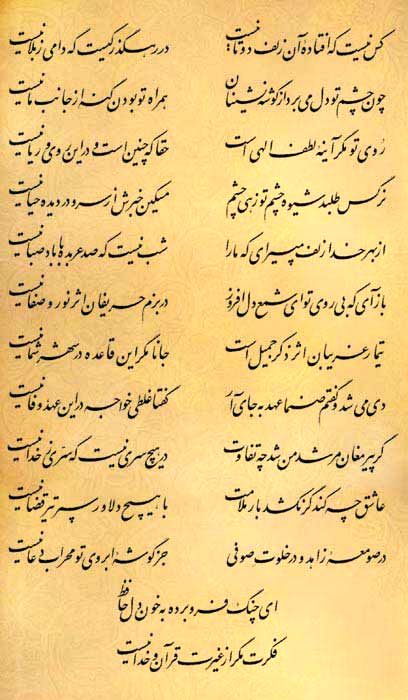 کس نیست که افتاده آن زلف دوتا نیست
در رهگذر کیست که دامی ز بلا نیست
چون چشم تو دل می برد از گوشه نشینان
همراه تو بودن گنه از جانب ما نیست
روی تو مگر آینه لطف الهی است
حقا که چنین است و در این روی و ریا نیست
نرگس طلبد شیوه چشم تو زهی چشم
مسکین خبرش از سر و در دیده حیا نیست
از بهر خدا زلف مپیرای که ما را
شب نیست که صد عربده با باد صبا نیست
بازآی که بی روی تو ای شمع دل افروز
در بزم حریفان اثر نور و صفا نیست
تیمار غریبان اثر ذکر جمیل است
جانا مگر این قاعده در شهر شما نیست
دی می شد و گفتم صنما عهد به جای آر
گفتا غلطی خواجه در این عهد وفا نیست
گر پیر مغان مرشد من شد چه تفاوت
در هیچ سری نیست که سری ز خدا نیست
عاشق چه کند گر نکشد بار ملامت
با هیچ دلاور سپر تیر قضا نیست
در صومعه زاهد و در خلوت صوفی
جز گوشه ابروی تو محراب دعا نیست
ای چنگ فرو برده به خون دل حافظ
فکرت مگر از غیرت قرآن و خدا نیست